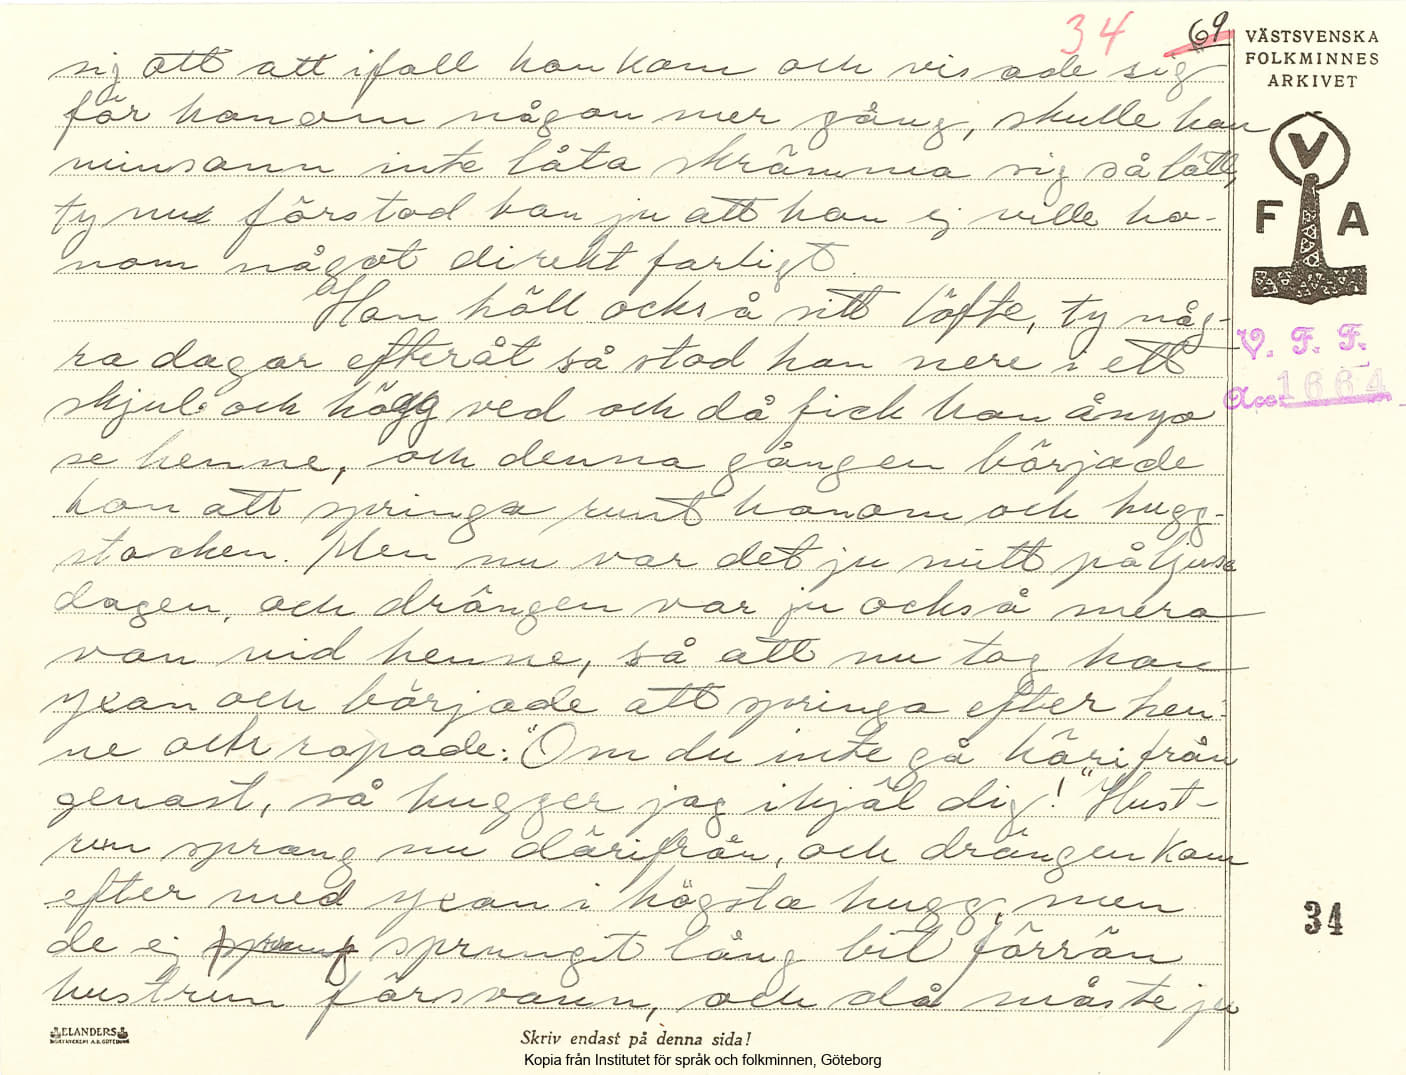 34 69
VÄSTSVENSKA
FOLKMINNES
ARKIVET
V
F A
V. F. F.
Acc. 1664
sig att att ifall hon kom och visade sig
för honom någon mer gång, skulle han
minsann inte låta skrämma sig så lätt,
ty nu förstod han ju att hon ej ville ho-
nom något direkt farligt.
Han höll också sitt löfte, ty någ-
ra dagar efteråt så stod han nere i ett
skjul och högg ved och då fick han ånyo
se henne, och denna gången började
hon att springa runt honom och hugg-
stocken. Men nu var det ju mitt på ljusa
dagen, och drängen var ju också mera
van vid henne, så att nu tog han
yxan och började att springa efter hen-
ne och ropade: "Om du inte gå härifrån
genast, så hugger jag ihjäl dig!" Hust-
run sprang nu därifrån, och drängen kom
efter med yxan i högsta hugg, men
de ej sprungit lång bit förrän
hustrun försvann, och då måste ju
34
ELANDERS
BOKTRYCKERI A.B. GÖTEBORG
Skriv endast på denna sida!
Kopia från Institutet för språk och folkminnen, Göteborg